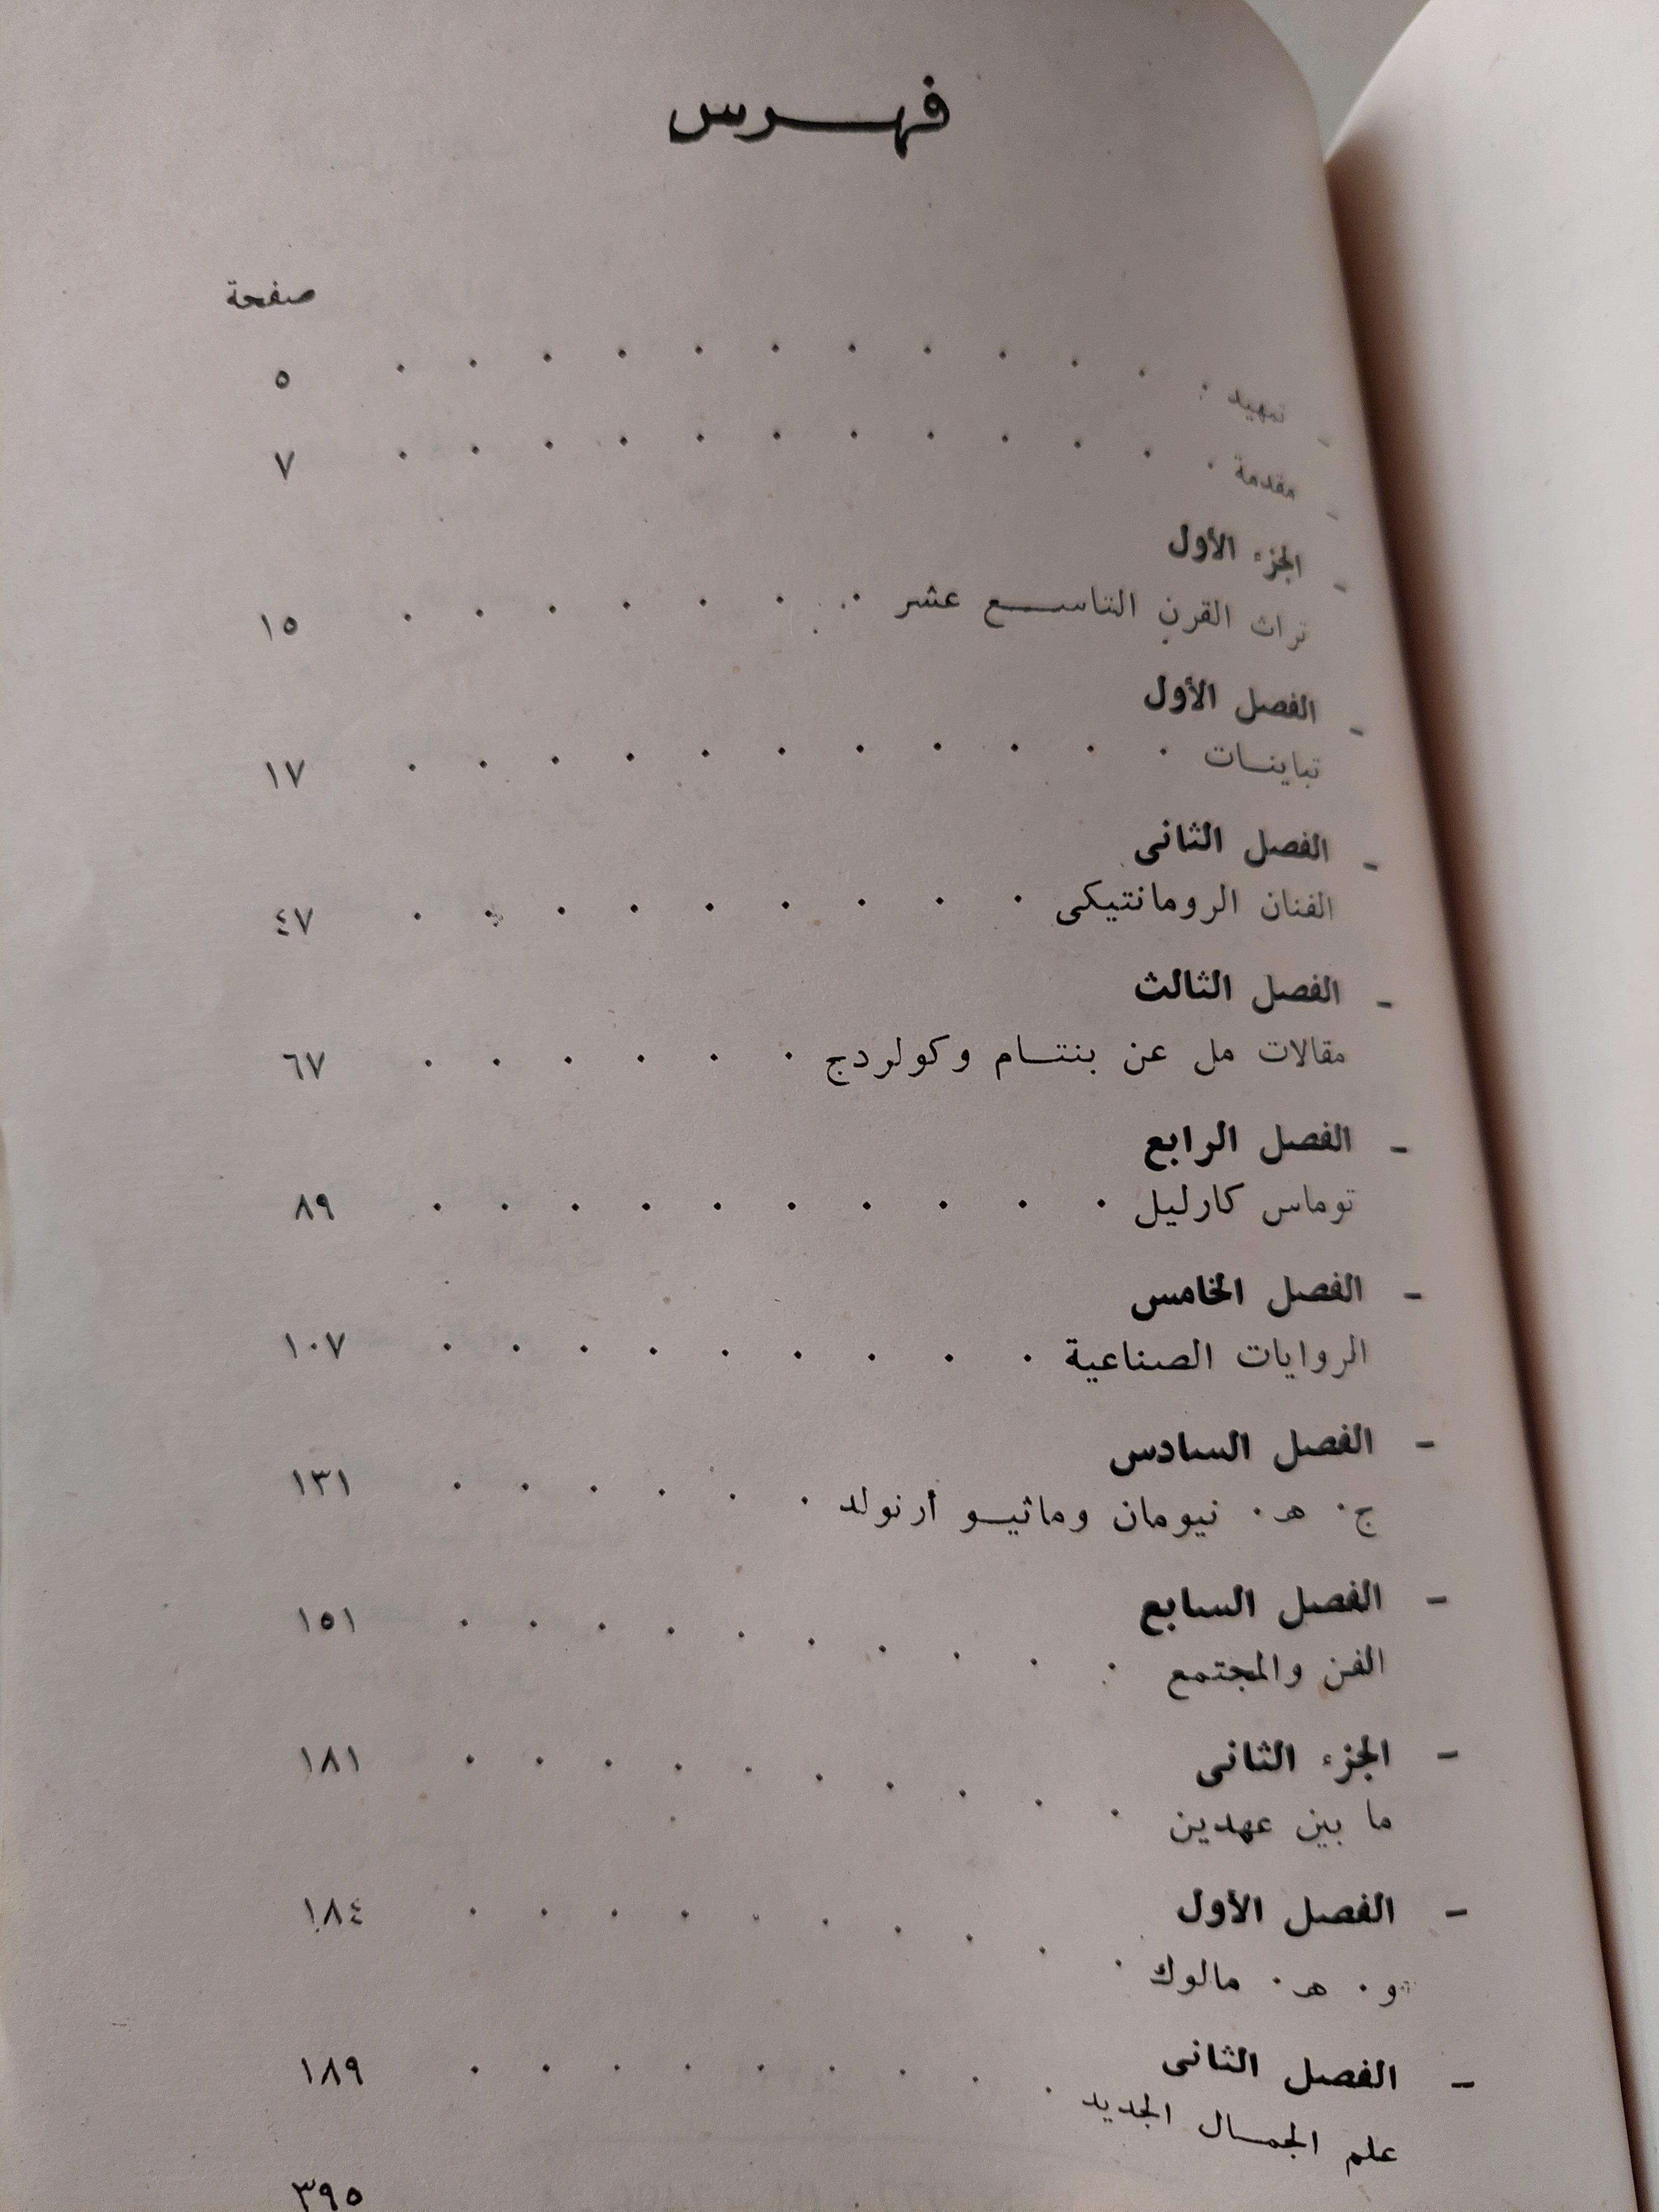 فهرس
صفحة
- تمهيد . . . . . . . . . . . . ٥
- مقدمة . . . . . . . . . . . . ٧
- الجزء الأول
تراث القرن التاسع عشر . . . . . . . ١٥
- الفصل الأول
تباينات . . . . . . . . . . . ١٧
- الفصل الثانى
الفنان الرومانتيكى . . . . . . . . . ٤٧
- الفصل الثالث
مقالات مل عن بنتام وكولردج . . . . . . ٦٧
- الفصل الرابع
توماس كارليل . . . . . . . . . . ٨٩
- الفصل الخامس
الروايات الصناعية . . . . . . . . . ١٠٧
- الفصل السادس
ج. هـ. نيومان وماثيو أرنولد . . . . . . ١٣١
- الفصل السابع
الفن والمجتمع . . . . . . . . . . ١٥١
- الجزء الثانى
ما بين عهدين . . . . . . . . . . ١٨١
- الفصل الأول
و. هـ. مالوك . . . . . . . . . . ١٨٤
- الفصل الثانى
علم الجمال الجديد . . . . . . . . . ١٨٩
٣٩٥